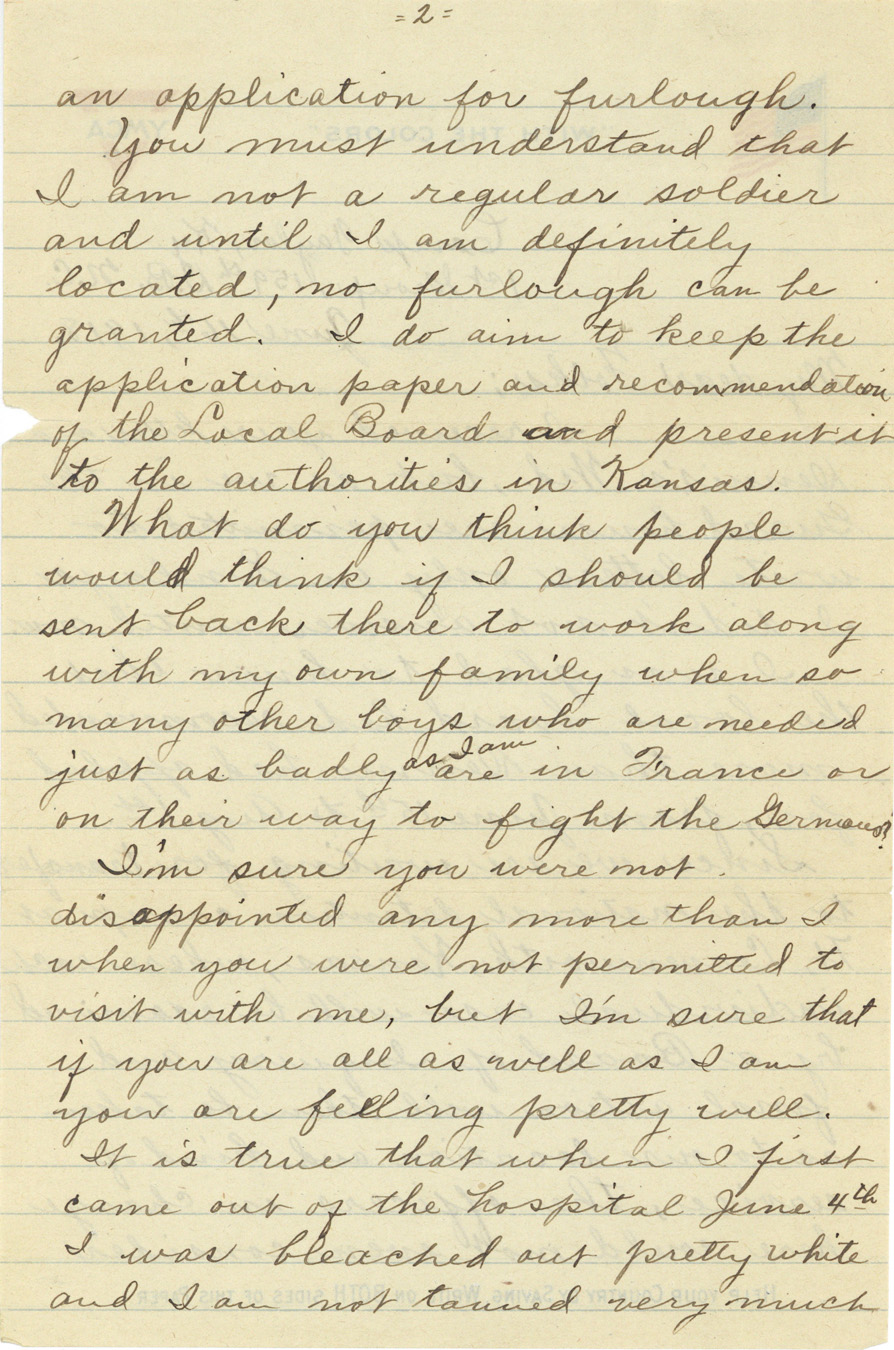 =2=
an application for furlough.
You must understand that
I am not a regular soldier
and until I am definitely
located, no furlough can be
granted. I do aim to keep the
application paper and recommendation
of the Local Board and present it
to the authorities in Kansas.
What do you think people
would think if I should be
sent back there to work along
with my own family when so
many other boys who are needed
just as badly as I am are in France or
on their way to fight the Germans?
I'm sure you were not
disappointed any more than I
when you were not permitted to
visit with me, but I'm sure that
if you are all as well as I am
you are feeling pretty well.
It is true that when I first
came out of the hospital June 4th
I was bleached out pretty white
and I am not tanned very much